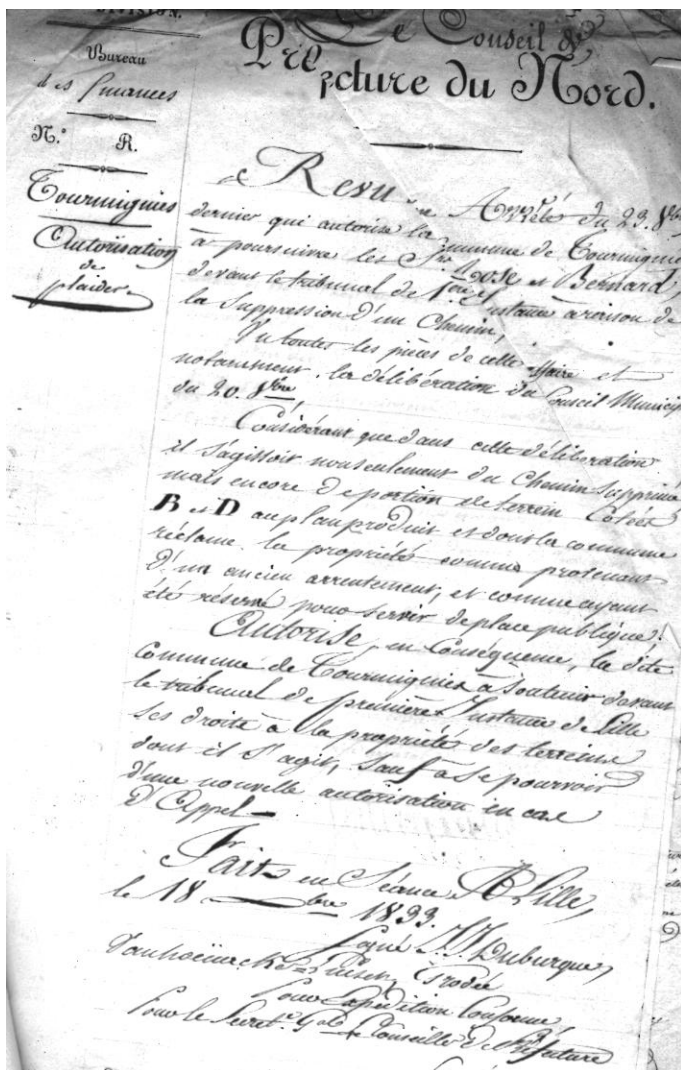 DIVISION.
Bureau
des finances
N.° R.
Tourmignies
Autorisation
de
plaider
Le Conseil de
Préfecture du Nord.
Revu Arrêté du 23. 8bre
dernier qui autorise la commune de Tourmignies
à poursuivre les Srs Rose et Bernard,
devant le tribunal de 1ère Instance à raison de
la suppression d'un Chemin,
Vu toutes les pièces de cette affaire et
notamment la délibération du Conseil Municip
du 20. 8bre
Considérant que dans cette délibération
il s'agissoit nonseulement du Chemin supprimé
mais encore de portion de terrein Cotées
B et D au plan produit et dont la commune
réclame la propriété comme provenant
d'un ancien arrentement, et comme ayant
été réservé pour servir de place publique.
Autorise, en Conséquence, la dite
Commune de Tourmignies à soutenir devant
le tribunal de première Instance de Lille
ses droits à la propriété des terreins
dont il s'agit, sauf à se pourvoir
d'une nouvelle autorisation en cas
d'Appel
Fait en Séance A Lille,
le 18 bre 1833.
Signé Duburque,
Pour Expédition Conforme,
Pour le Secret.re Gal le Conseiller de Préfecture